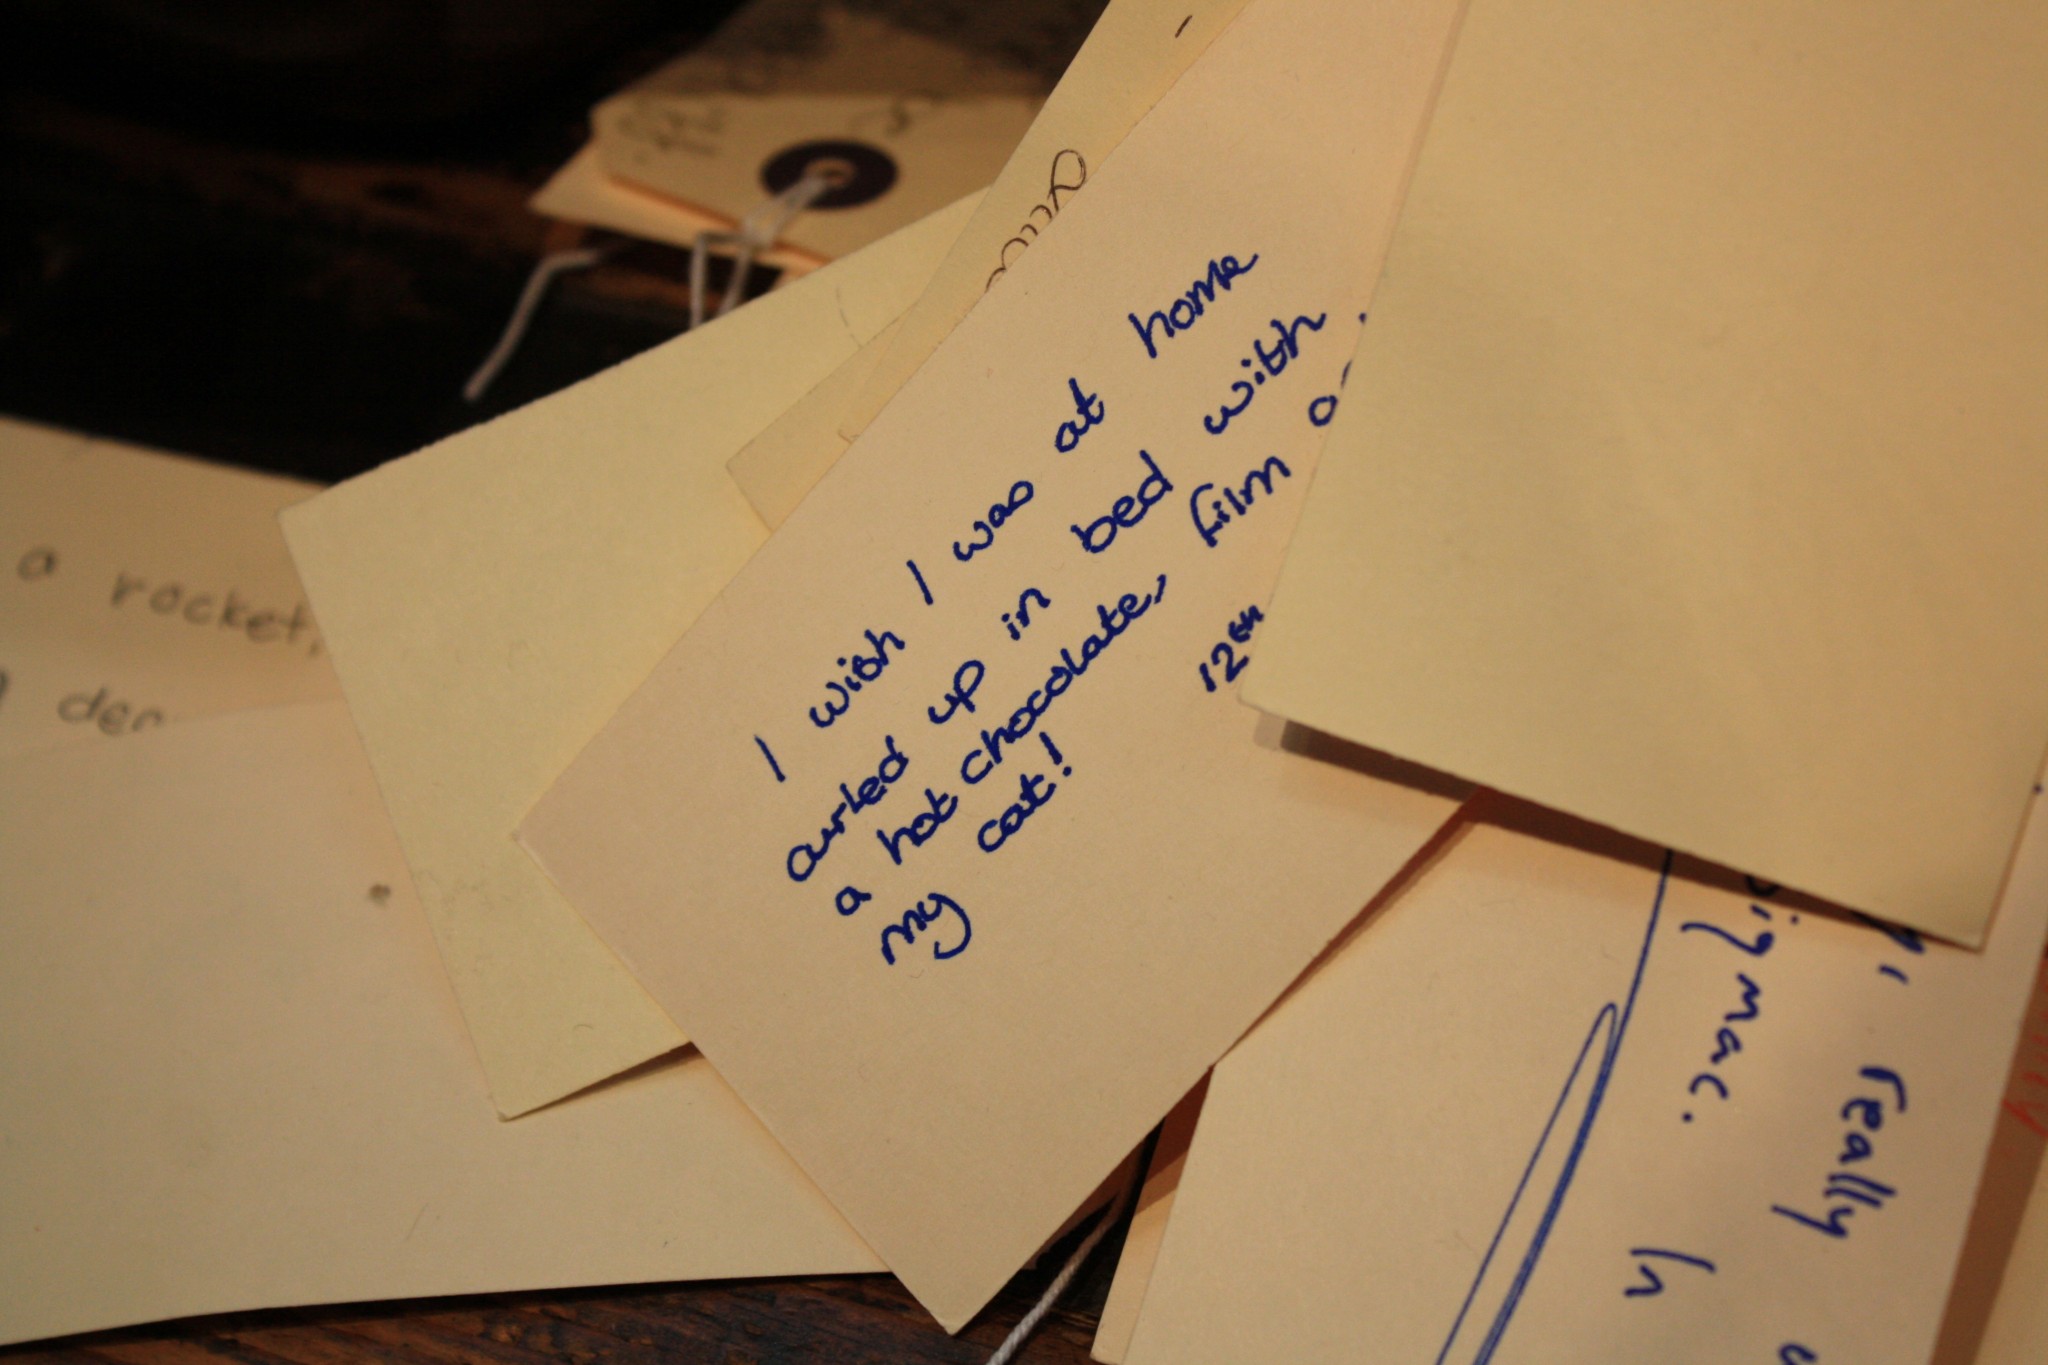 I wish I was at home
curled up in bed with
a hot chocolate, film
my cat!
12th
a rocket,
really
sigmac.
In